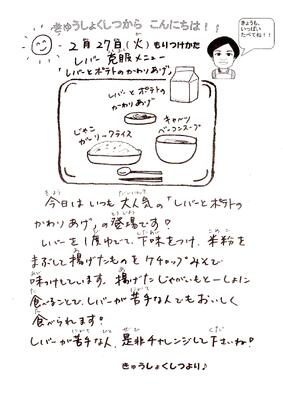 きゅうしょくしつから こんにちは！！
きょうも、
いっぱい
たべてね！！
2月27日(火)もりつけかた
レバー克服メニュー
「レバーとポテトのかわりあげ」
レバーとポテトの
かわりあげ
じゃこ
ガーリックライス
キャベツ
ベーコンスープ
今日はいつも大人気の「レバーとポテトの
かわりあげ」の登場です！
レバーを1度ゆでて、下味をつけ、米粉を
まぶして揚げたものをケチャップみそで
味つけしています。揚げたじゃがいもと一しょに
食べることで、レバーが苦手な人でもおいしく
食べられます！
レバーが苦手な人、是非チャレンジして下さいね！
きゅうしょくしつより♪